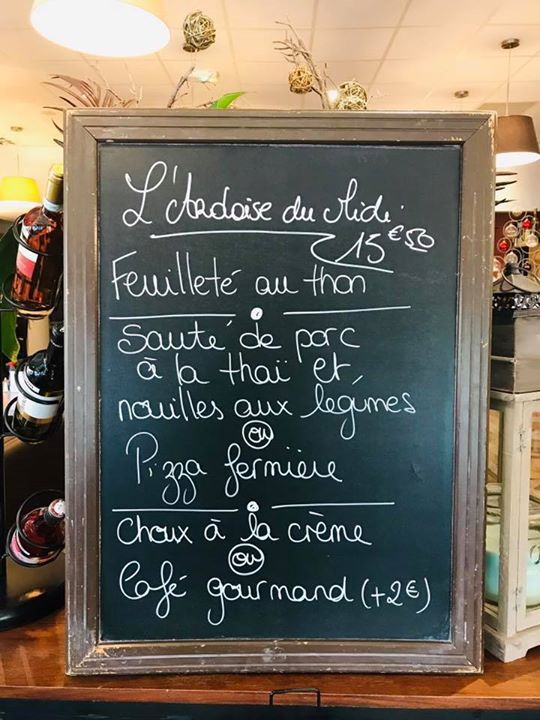 L'Ardoise du Midi
15€50
Feuilleté au thon
Sauté de porc
à la thaï et
nouilles aux légumes
ou
Pizza fermière
Choux à la crème
ou
Café gourmand (+2€)